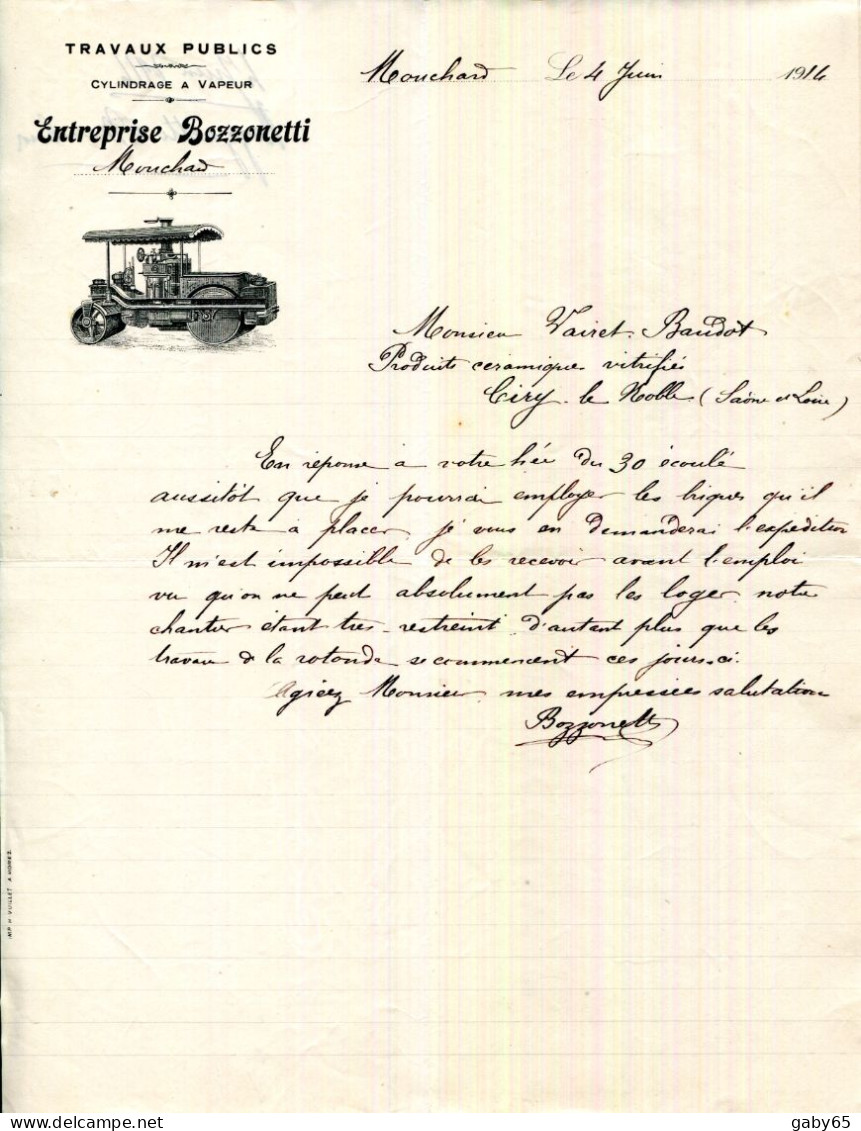 TRAVAUX PUBLICS
CYLINDRAGE A VAPEUR
Entreprise Bozzonetti
Mouchard
Mouchard Le 4 Juin 1914
Monsieur Vairet-Baudot
Produits ceramique vitrifiés
Ciry-le Noble (Saône et Loire)
En réponse à votre hée du 30 écoulé
aussitôt que je pourrai employer les briques qu'il
me reste à placer, je vous en demanderai l'expedition
Il m'est impossible de les recevoir avant l'emploi
vu qu'on ne peut absolument pas les loger notre
chantier étant très-restreint d'autant plus que les
travaux de la rotonde se commencent ces jours-ci.
Agréez Monsieur mes empressées salutation
Bozzonetti
IMP. H. VUILLET A MOREZ.
gaby65